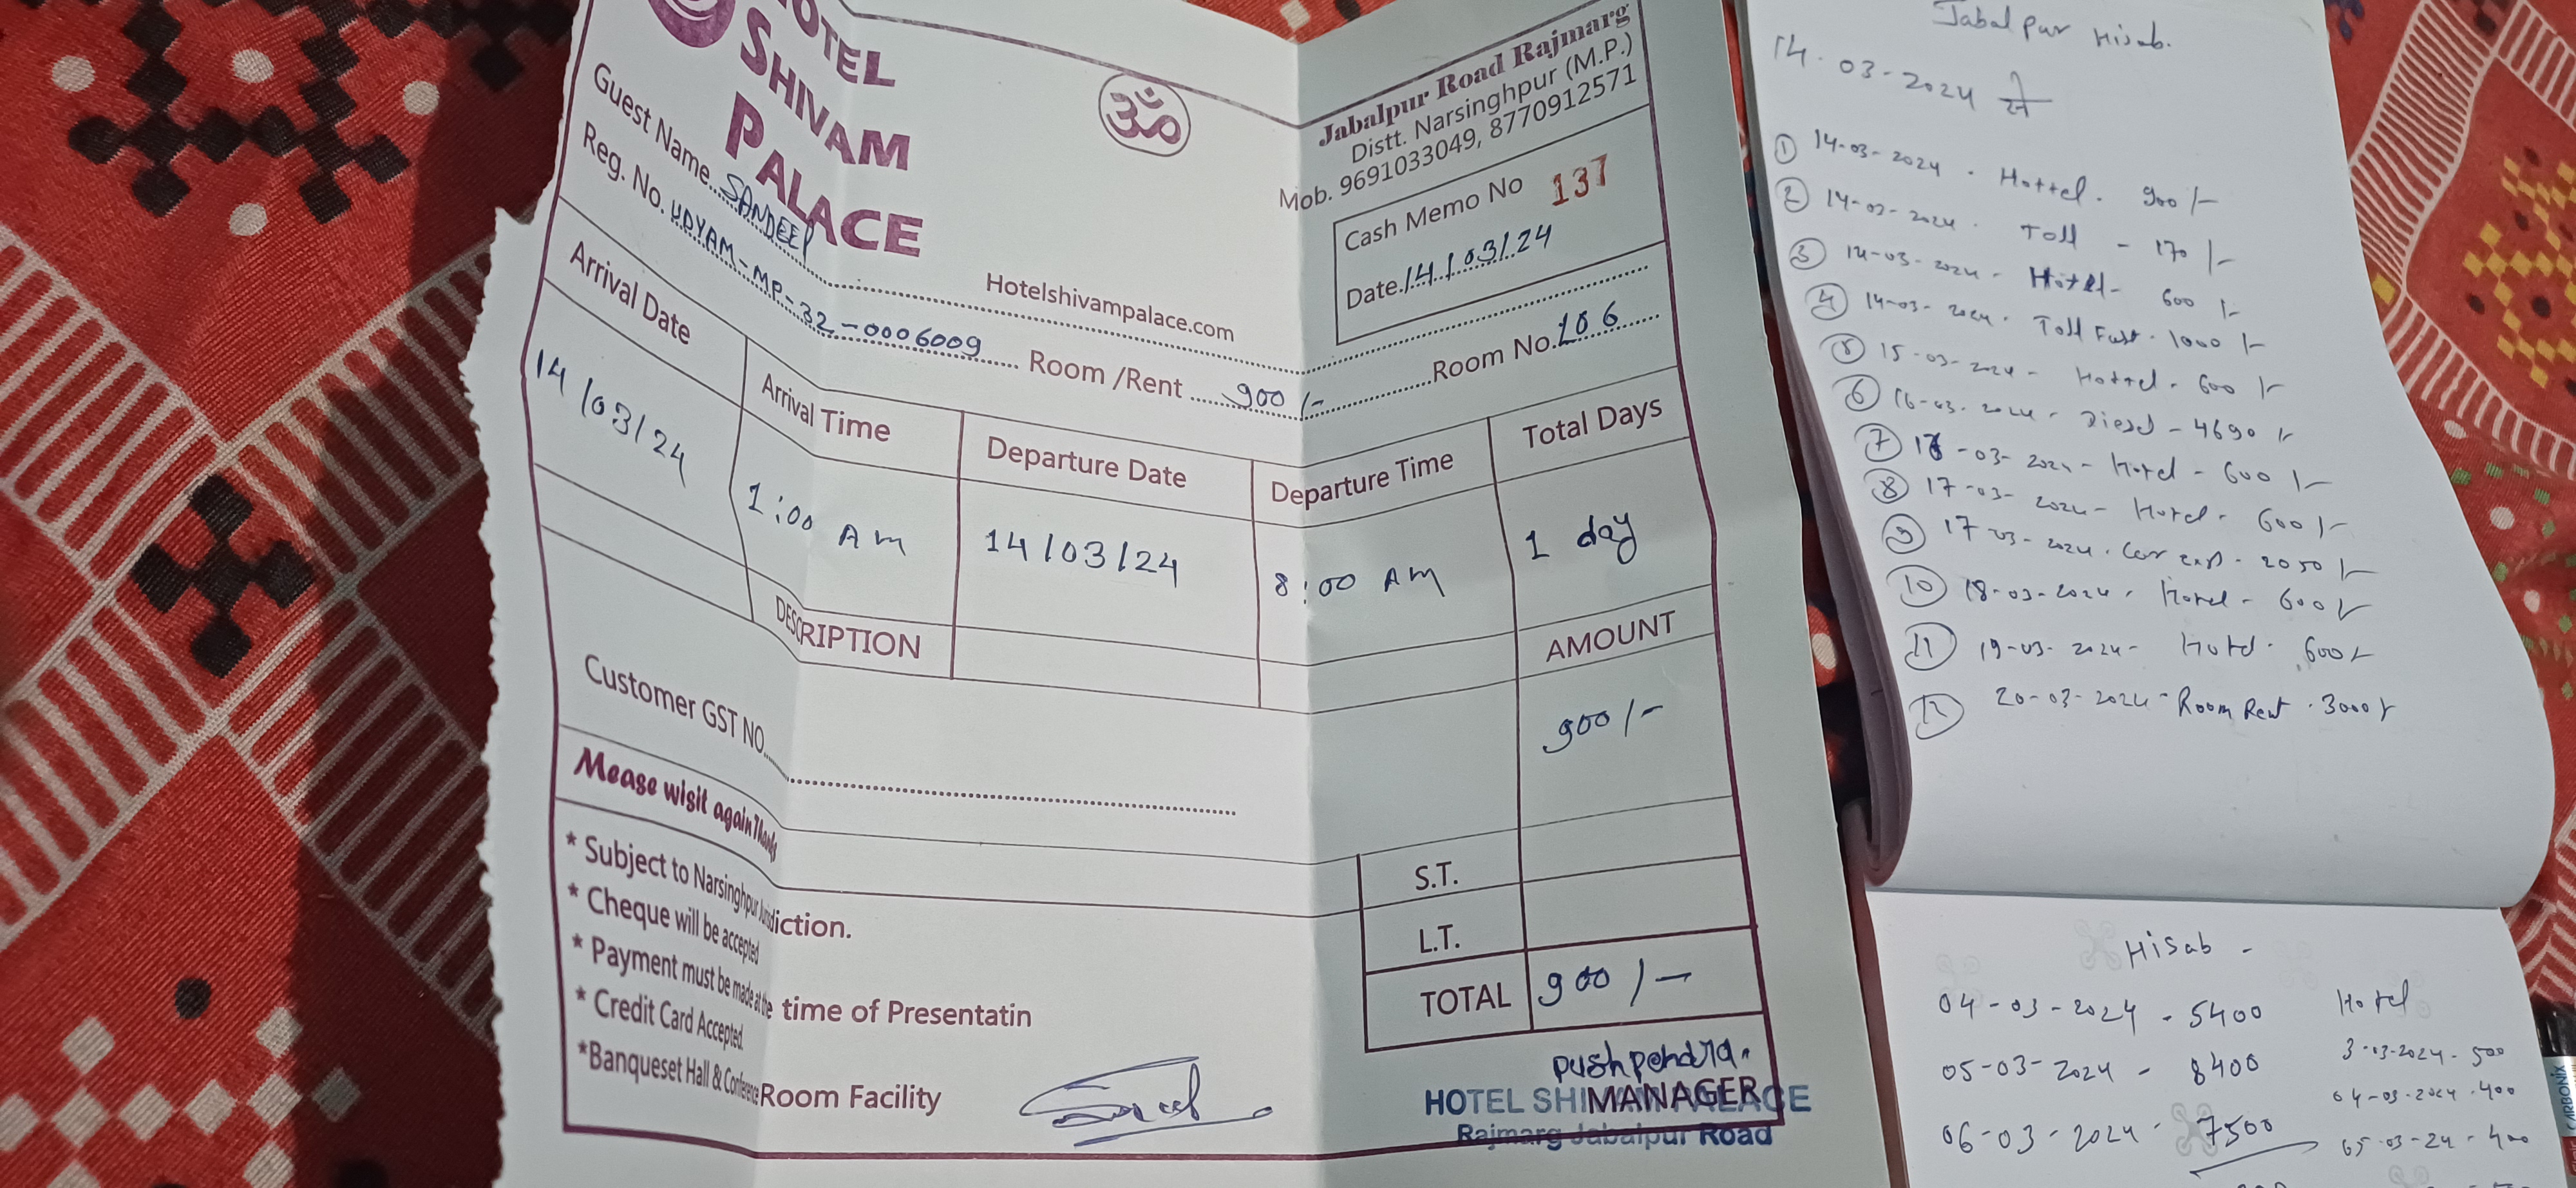 HOTEL
SHIVAM
PALACE
ॐ
Jabalpur Road Rajmarg
Distt. Narsinghpur (M.P.)
Mob. 9691033049, 8770912571
Hotelshivampalace.com
Cash Memo No 137
Date.14/03/24
Guest Name..SANDEEP
Reg. No. UDYAM-MP-32-0006009 Room /Rent 900/- Room No.106
Arrival Date Arrival Time Departure Date Departure Time Total Days
14/03/24 1:00 AM 14/03/24 8:00 AM 1 day
DESCRIPTION AMOUNT
900/-
Customer GST NO.
Mease wisit again Thanks
S.T.
L.T.
TOTAL 900/-
* Subject to Narsinghpur Jurisdiction.
* Cheque will be accepted
* Payment must be made at the time of Presentatin
* Credit Card Accepted.
*Banqueset Hall & Conference Room Facility
Pushpendra.
MANAGER
HOTEL SHIVAM PALACE
Rajmarg Jabalpur Road
Jabalpur Hisab.
14-03-2024 से
1 14-03-2024 - Hottel - 900/-
2 14-03-2024 - Toll - 170/-
3 14-03-2024 - Hotel - 600/-
4 14-03-2024 - Toll Fast - 1000/-
5 15-03-2024 - Hottel - 600/-
6 16-03-2024 - Diesel - 4690/-
7 16-03-2024 - Hotel - 600/-
8 17-03-2024 - Hotel - 600/-
9 17-03-2024 - Car exp - 2050/-
10 18-03-2024 - Hotel - 600/-
11 19-03-2024 - Hotel - 600/-
12 20-03-2024 - Room Rent - 3000/-
Hisab -
04-03-2024 - 5400
05-03-2024 - 8400
06-03-2024 - 7500
Hotel
3-03-2024 - 500
04-03-2024 - 400
05-03-24 - 400